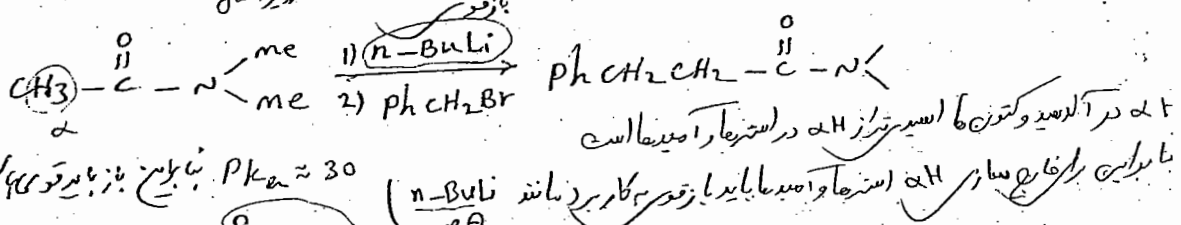 باز قوی
CH3 – C(=O) – N(me)(me) 1) n-BuLi 2) PhCH2Br → PhCH2CH2 – C(=O) – N<
α
αH در آلدهید و کتون‌ها اسیدی‌تر از αH در استرها و آمیدها است
بنابراین برای خارج سازی αH استرها و آمیدها باید باز قوی به کار برد مانند n-BuLi
Pka ≈ 30 بنابراین باز باید قوی